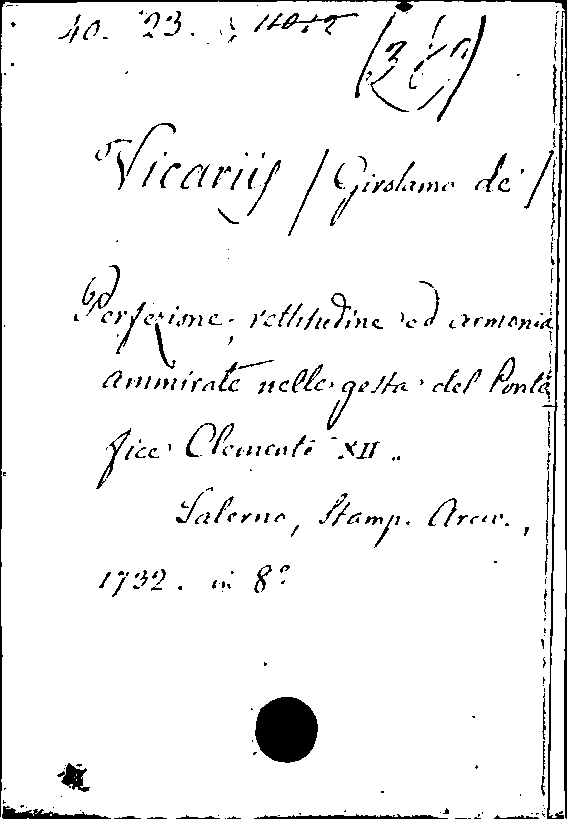 40. 23.
Vicariis / Girolamo de' /
Perfezione, rettitudine ed armonia
ammirate nelle gesta del Ponte
fice Clemente XII.
Salerno, Stamp. Arciv.,
1732. in 8º